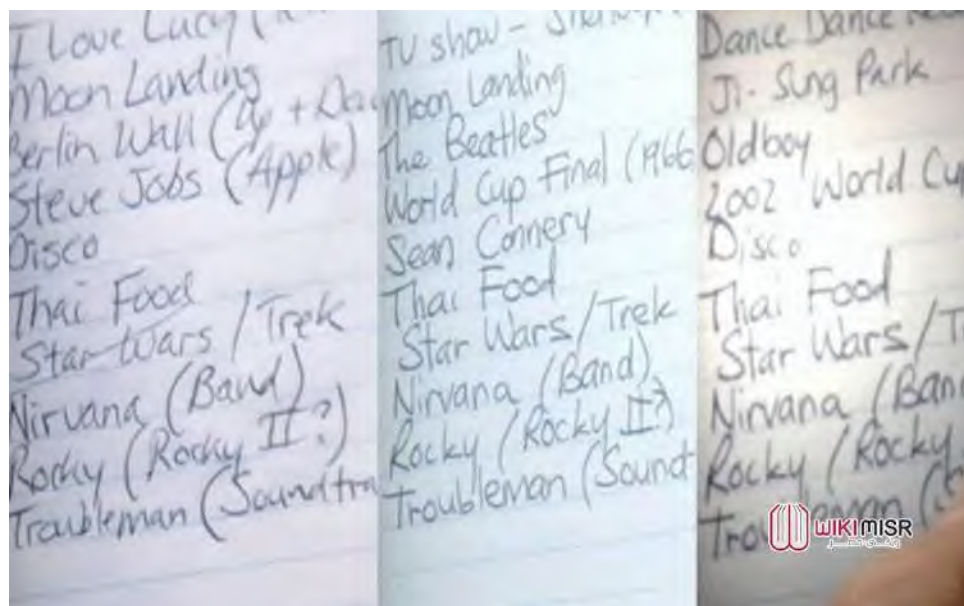 I Love Lucy
Moon Landing
Berlin Wall (Up +
Steve Jobs (Apple)
Disco
Thai Food
Star Wars / Trek
Nirvana (Band)
Rocky (Rocky II?)
Troubleman (Soundtra
TV show -
Moon Landing
The Beatles
World Cup Final (1966
Sean Connery
Thai Food
Star Wars/Trek
Nirvana (Band)
Rocky (Rocky II?)
Troubleman (Sound
Dance Dance
Ji-Sung Park
Oldboy
2002 World Cup
Disco
Thai Food
Star Wars/T
Nirvana (Ban
Rocky (Rocky
WIKIMISR